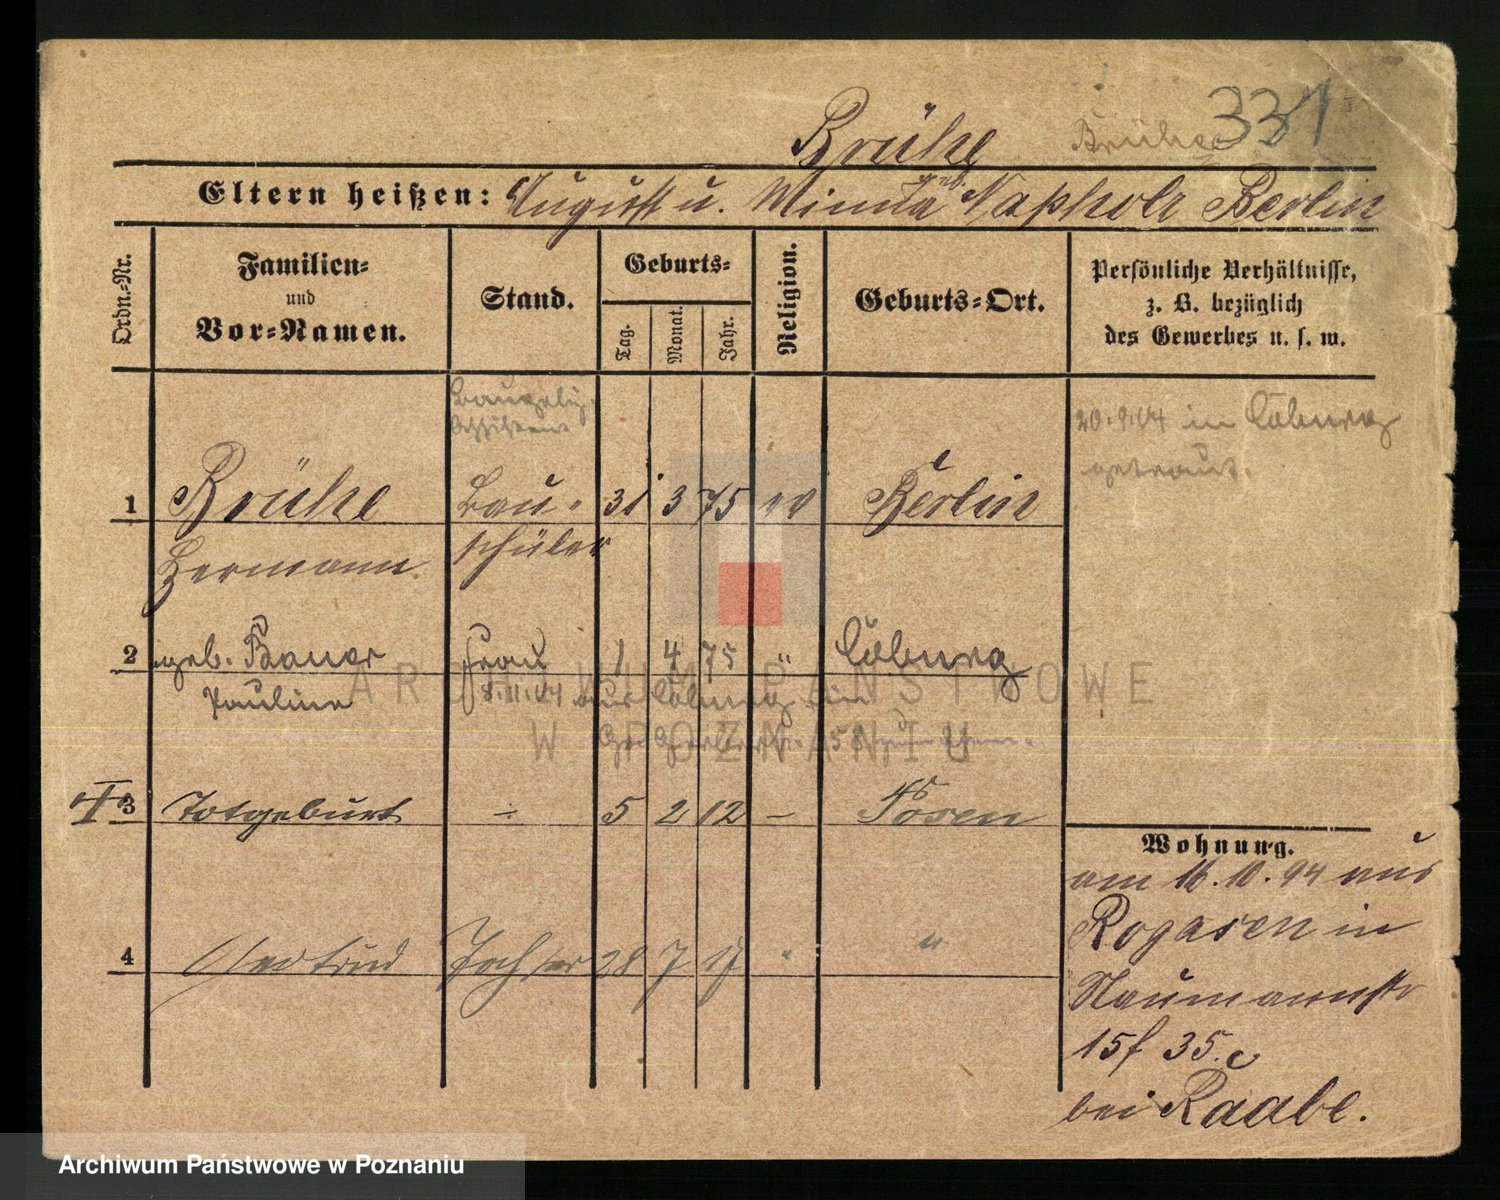 331
Brühe Brühe
Eltern heißen: August u. Minna geb. Napholz Berlin
Ordn.-Nr.
Familien-
und
Vor-Namen.
Stand.
Geburts-
Tag.
Monat.
Jahr.
Religion.
Geburts-Ort.
Persönliche Verhältnisse,
z. B. bezüglich
des Gewerbes u. s. w.
20.9.04 in Coburg
getraut.
1 Brühe Bau- 31 3 75 ev Berlin
Hermann schüler
2 geb. Bauer Frau 1 4 75 " Coburg
Pauline 8.11.04 aus Coburg in
3 Totgeburt - 5 2 12 - Posen
Wohnung.
am 16.10.94 aus
Rogasen in
Naumannstr
15f 35.
bei Raabe.
4 Gertrud Tochter 28 7 17 " "
ARCHIWUM PAŃSTWOWE
W POZNANIU
Archiwum Państwowe w Poznaniu